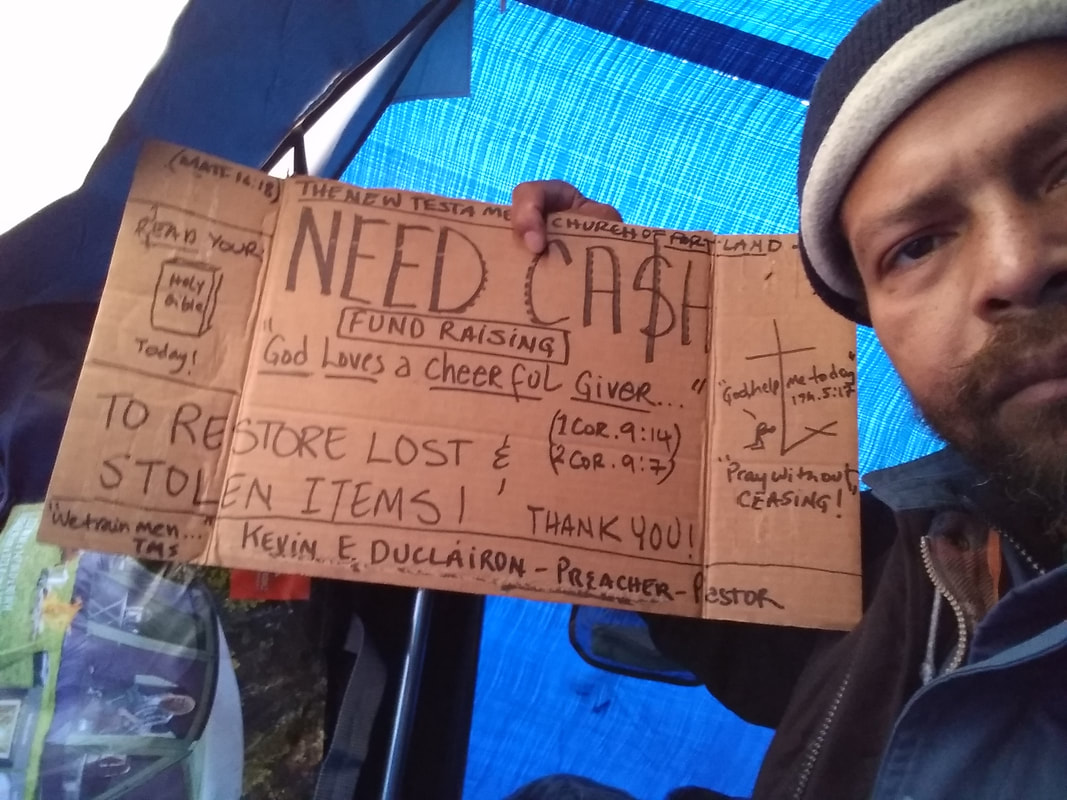 (MATT 16:18)
THE NEW TESTAME
CHURCH OF PORT-LAND -
READ YOUR
HOLY
Bible
Today!
NEED CA$H
FUND RAISING
"God Loves a Cheerful Giver..."
(1 COR. 9:14)
(2 COR. 9:7)
TO RESTORE LOST &
STOLEN ITEMS!
THANK YOU!
"We train men..."
TMS
KEVIN E. DUCLAIRON - PREACHER - PASTOR
"God help me today"
1 Th. 5:17
"Pray without
CEASING!